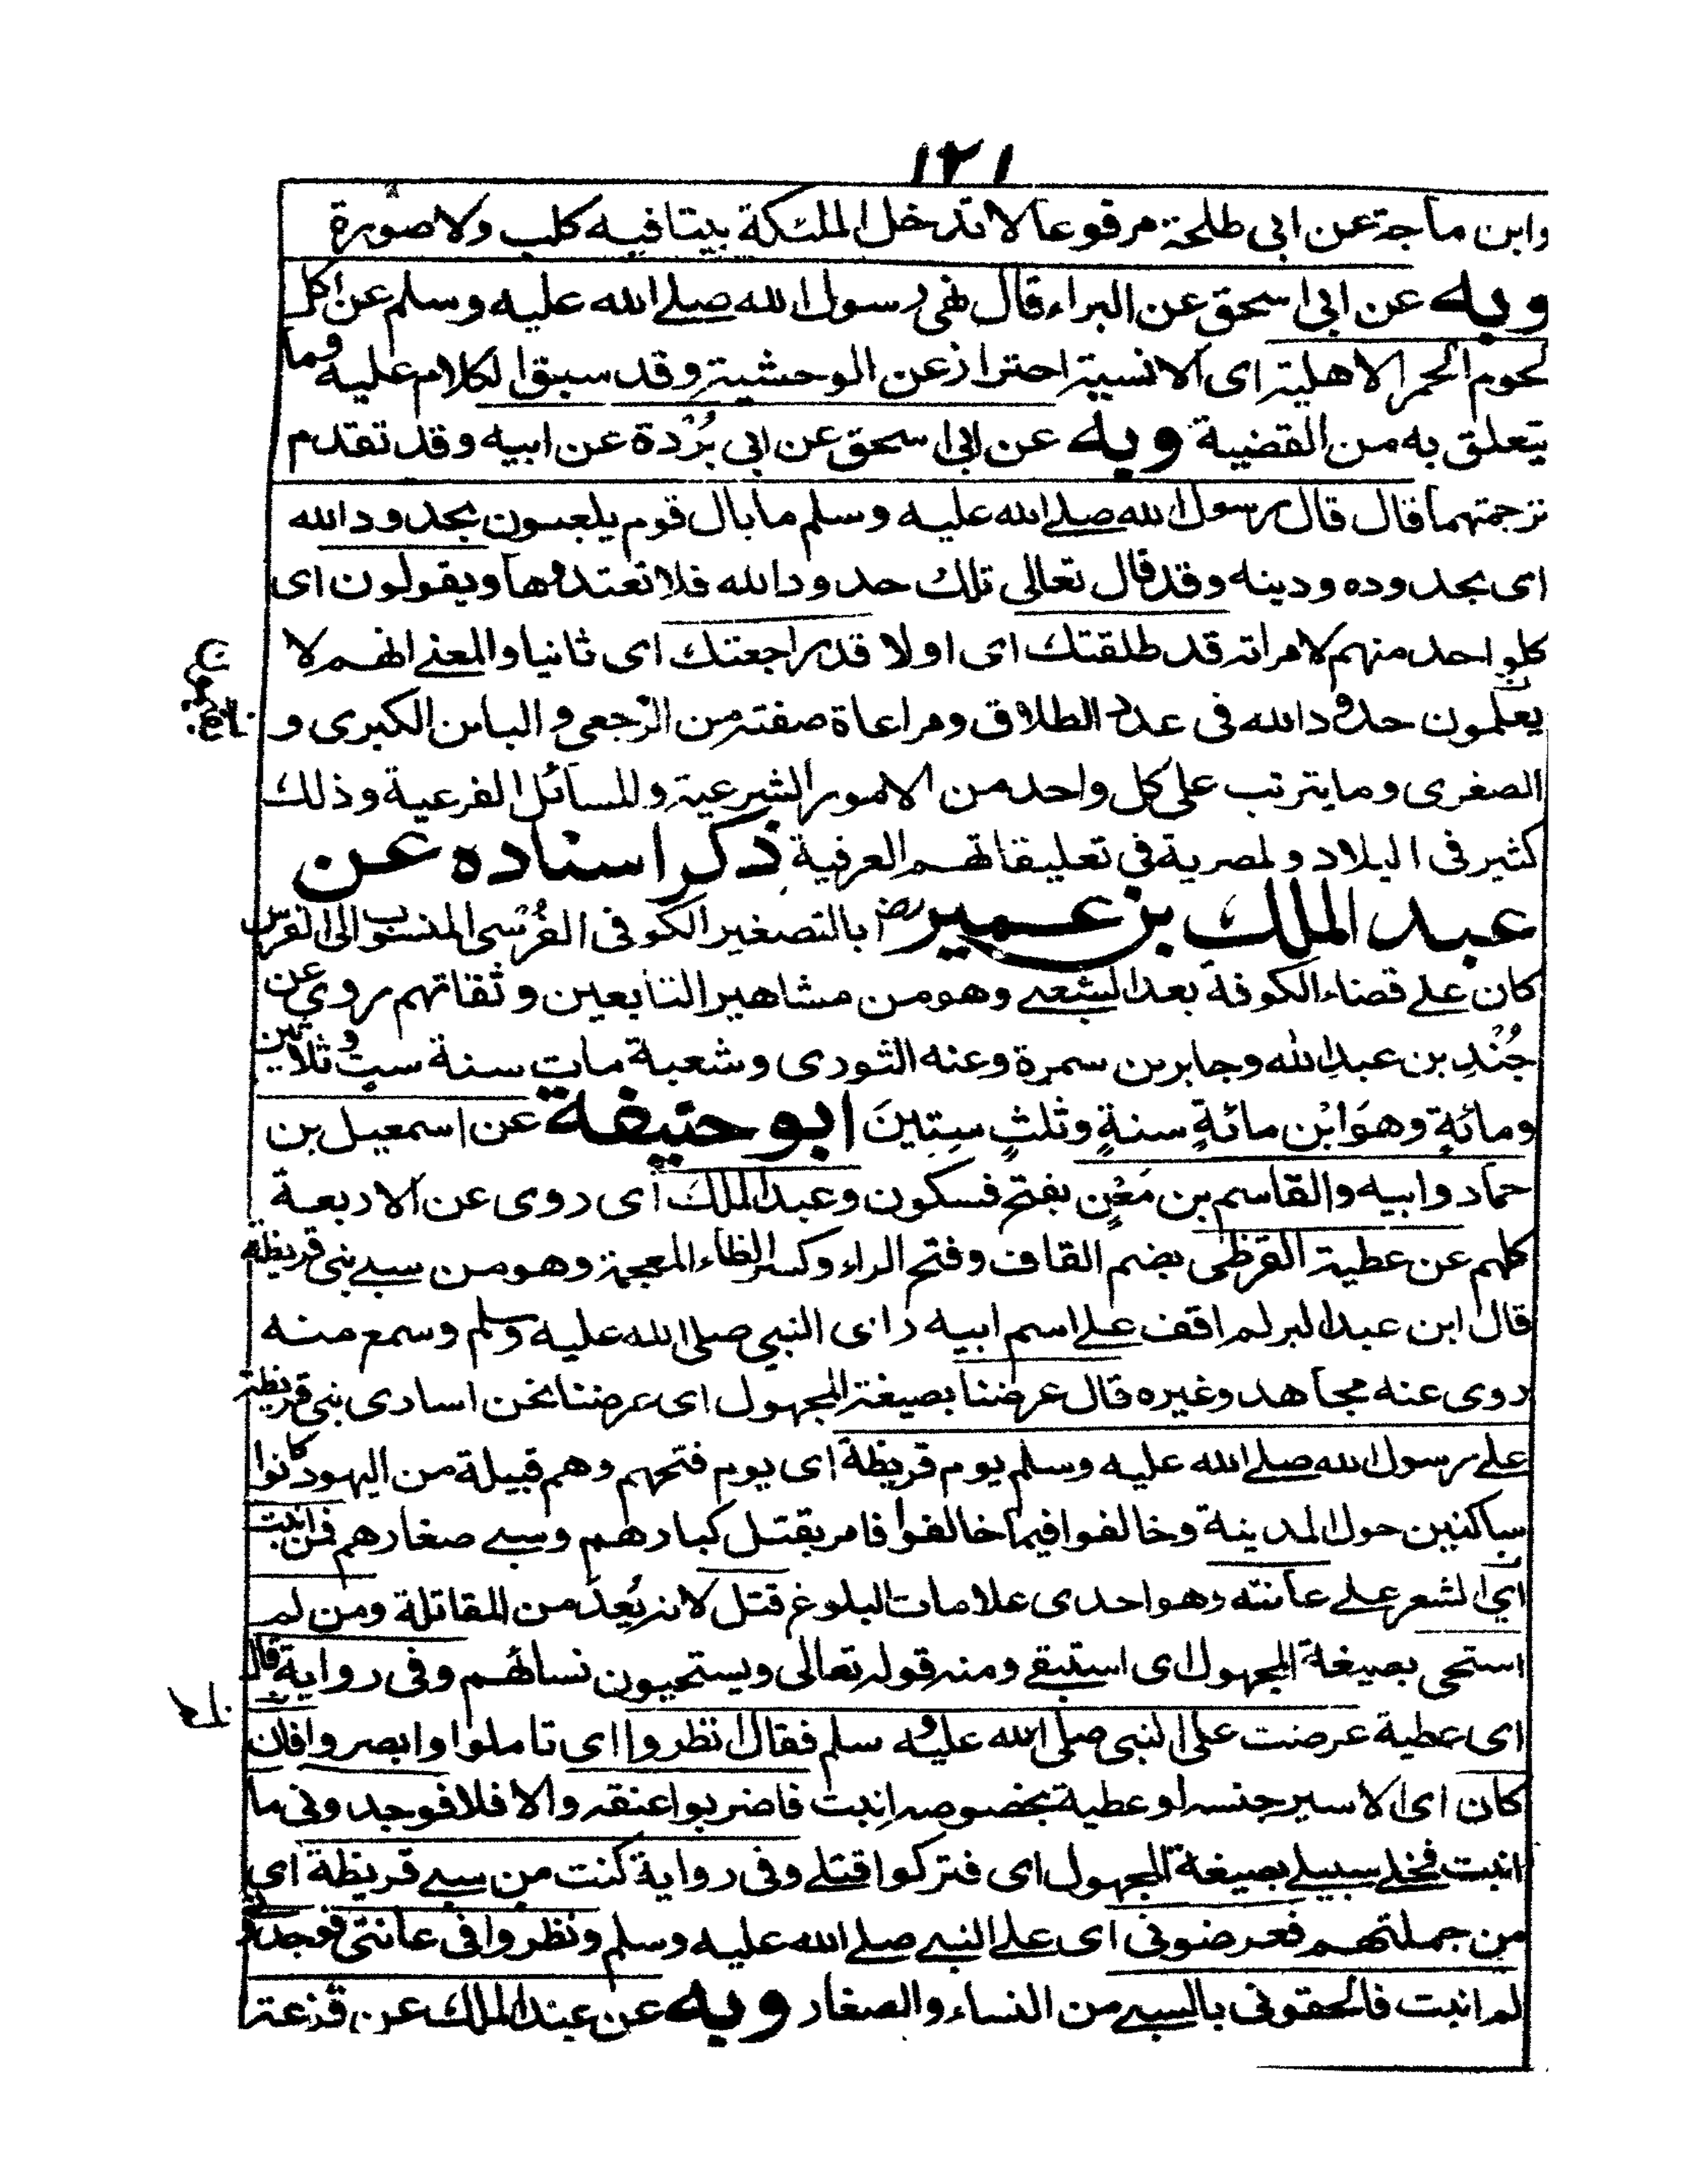 ١٢١
وابن ماجة عن ابي طلحة مرفوعا لا تدخل الملئكة بيتا فيه كلب ولا صورة
وبه عن ابي اسحق عن البراء قال نهى رسول الله صلے الله عليه وسلم عن اكل
لحوم الحمر الاهلية اى الانسية احتراز عن الوحشية وقد سبق الكلام عليه وما
يتعلق به من القضية وبه عن ابي اسحق عن ابي بُرْدة عن ابيه وقد تقدم
ترجمتهما قال قال رسول الله صلے الله عليه وسلم ما بال قوم يلعبون بحدود الله
اى بحدوده ودينه وقد قال تعالى تلك حدود الله فلا تعتدوها ويقولون اى
كلواحد منهم لامراته قد طلقتك اى اولا قد راجعتك اى ثانيا والمعنے انهم لا
يعلمون حدود الله فى عدد الطلاق ومراعاة صفته من الرجعي والبائن الكبرى و
الصغرى وما يترتب على كل واحد من الامور الشرعية والمسائل الفرعية وذلك
كثير فى البلاد ولمصرية فى تعليقاتهم العرفية ذكر اسناده عن
عبد الملك بن عمير رض بالتصغير الكوفى القُرْسى المنسوب الى القرس
كان علے قضاء الكوفة بعد الشعبے وهو من مشاهير التابعين وثقاتهم روى عن
جُنْدِ بن عبدِ الله وجابر بن سمرة وعنه الثورى وشعبة مات سنة ستٍ وثلاثين
ومائةٍ وهوَ ابْن مائةٍ سنةٍ وثلثٍ سِتِينَ ابو حنيفة عن اسمعيل بن
حماد وابيه والقاسم بن مَعْنٍ بفتح فسكون وعبد الملك اى روى عن الاربعة
كلهم عن عطية القرظى بضم القاف وفتح الراء وكسر الظاء المعجمة وهو من سبے بنى قريظة
قال ابن عبد البر لم اقف علے اسم ابيه راى النبي صلى الله عليه وسلم وسمع منه
روى عنه مجاهد وغيره قال عرضنا بصيغة المجهول اى عرضنا نحن اسارى بنى قريظة
علے رسول الله صلے الله عليه وسلم يوم قريظة اى يوم فتحهم وهم قبيلة من اليهود كانوا
ساكنين حول المدينة وخالفوا فيما خالفوا فامر بقتل كبارهم وسبے صغارهم فمن انبت
اي الشعر علے عانته وهو احدى علامات البلوغ قتل لانه يُعدّ من المقاتلة ومن لم
استحى بصيغة المجهول اى استبقے ومنه قوله تعالى ويستحيون نسائهم وفى رواية قال
اى عطية عرضت على النبى صلى الله عليه وسلم فقال انظروا اى تاملوا وابصروا فان
كان اى الاسير جنسه او عطية بخصوصه انبت فاضربوا عنقه والا فلا فوجدونى ما
انبت فخلے سبيلے بصيغة المجهول اى فتركوا قتلے وفى رواية كنت من سبے قريظة اى
من جملتهم فعرضونى اى علے النبے صلے الله عليه وسلم ونظروا فى عانتى فوجدونى
لم انبت فالحقونى بالسبے من النساء والصغار وبه عن عبد الملك عن قزعة